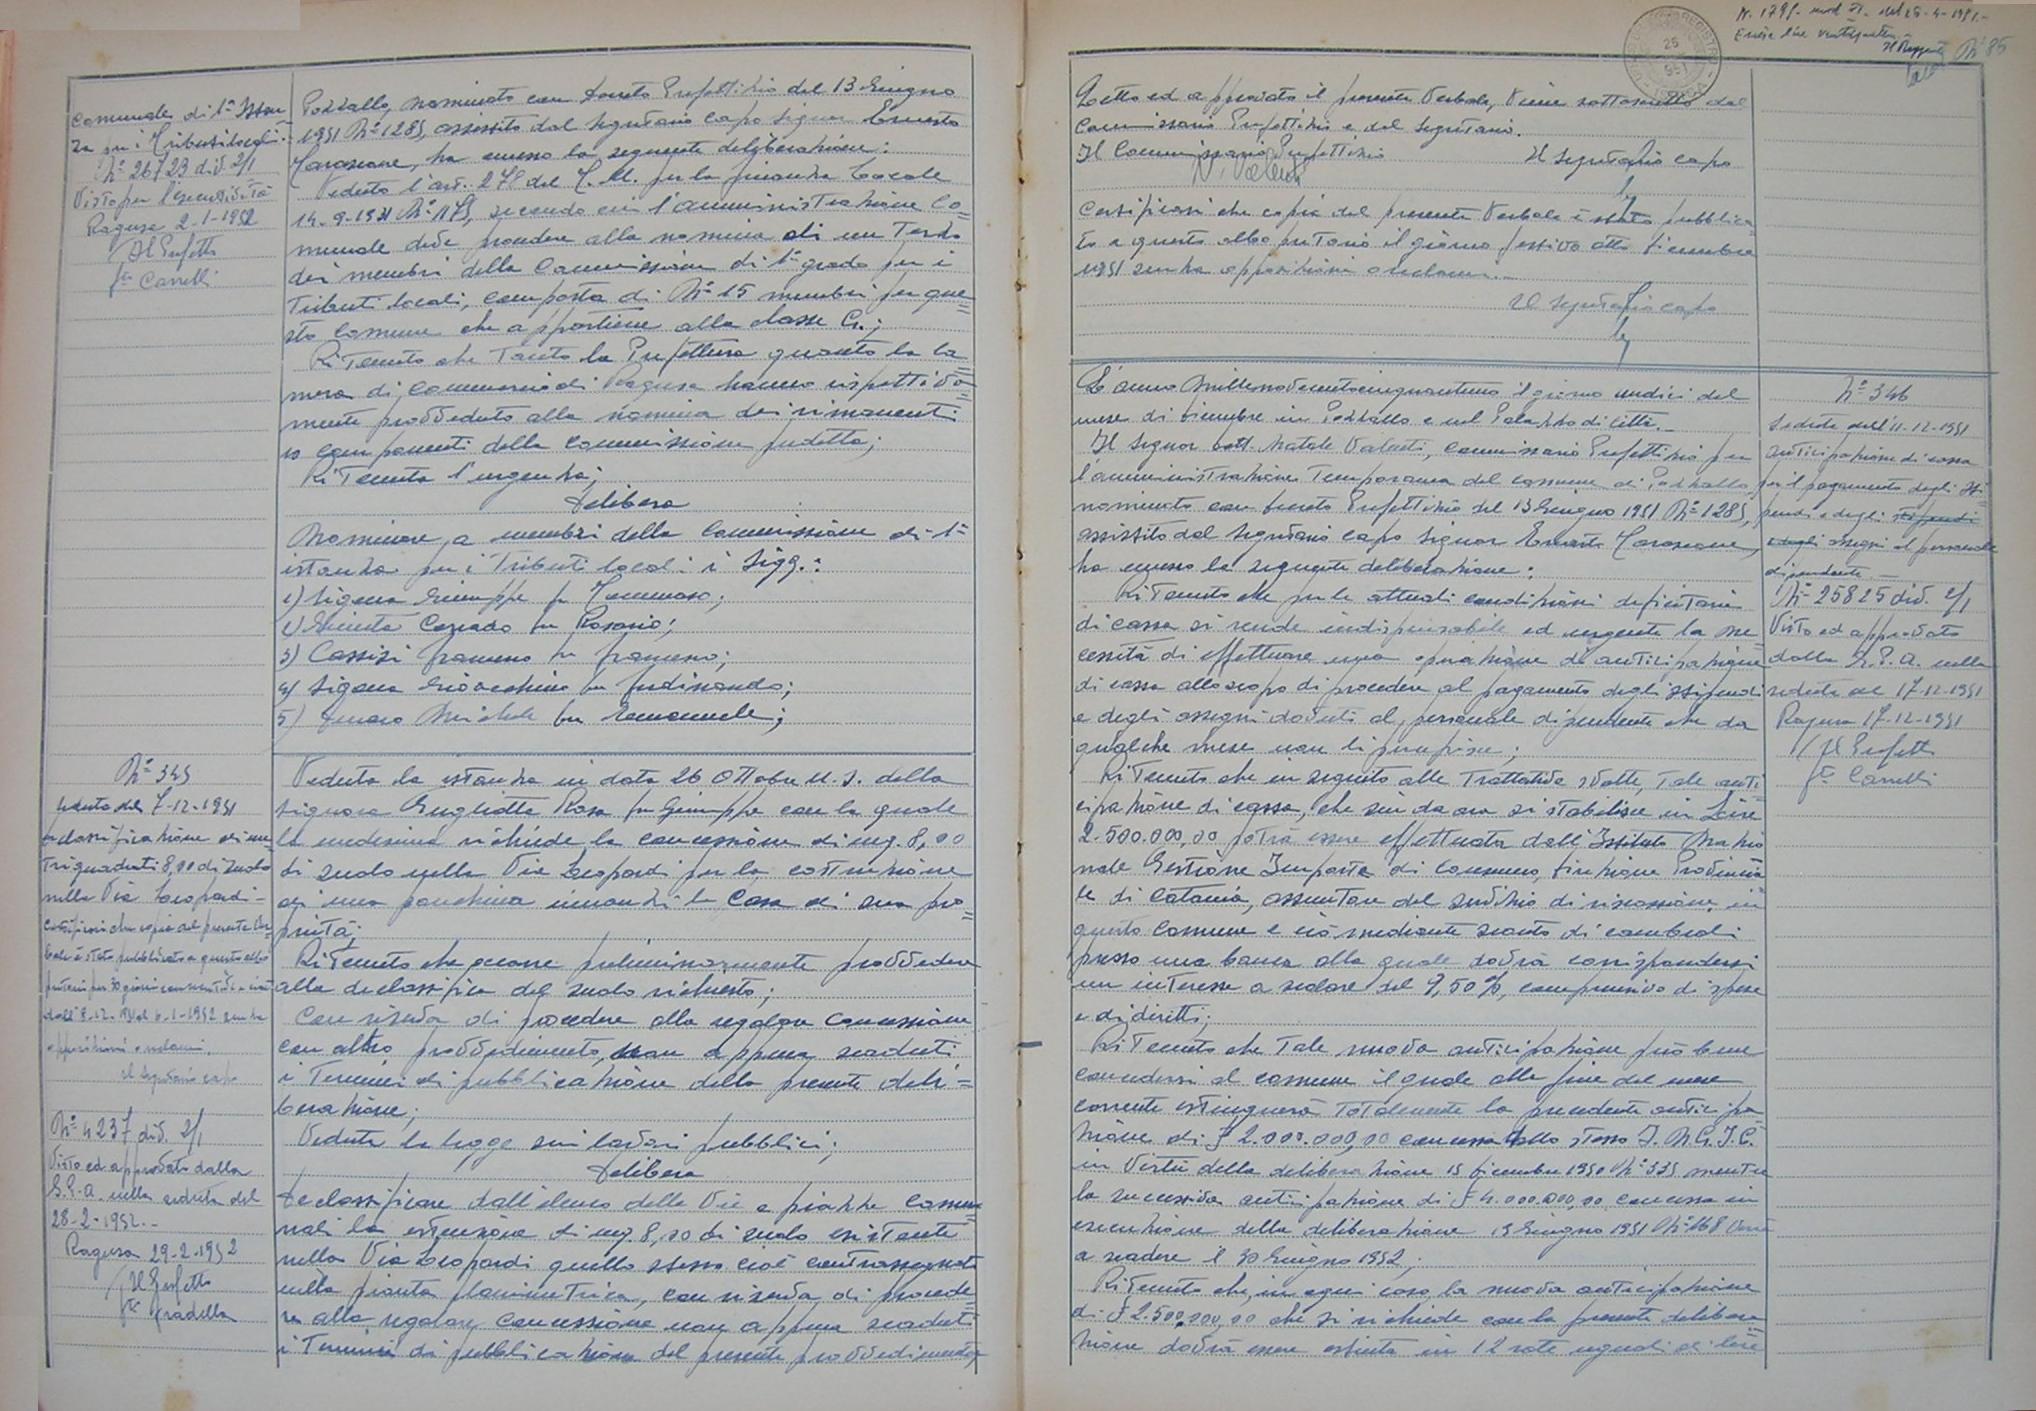 comunale di 1ª Istan
za per i Tributi locali.-
Nº 26723 div. 2/1
Visto per l'esecutività
Ragusa 2-1-1952
Il Prefetto
fto Carrelli
Pozzallo, nominato con Decreto Prefettizio del 13 Giugno
1951 Nº 1285, assistito dal Segretario capo Signor Ernesto
ha emesso la seguente deliberazione:
Veduto l'art. 278 del T. U. per la finanza locale
14-9-1931 Nº 1175, secondo cui l'amministrazione Co=
munale deve procedere alla nomina di un terzo
dei membri della Commissione di 1º grado per i
Tributi locali, composta di Nº 15 membri per que=
sto Comune che appartiene alla classe G.;
Ritenuto che tanto la Prefettura quanto la Ca
mera di Commercio di Ragusa hanno rispettiva=
mente provveduto alla nomina dei rimanenti
10 componenti della Commissione predetta;
Ritenuta l'urgenza;
Delibera
Nominare, a membri della Commissione di 1ª
istanza per i Tributi locali i Sigg.:
1) Sigona Giuseppe fu Tommaso;
2) Giunta Corrado fu Rosario;
3) Cassisi Francesco fu Francesco;
4) Sigona Gioacchino fu Ferdinando;
5) Michele fu Emanuele;
Nº 345
Seduta del 7-12-1951
declassificazione di me
tri quadrati 8,00 di suolo
nella Via Leopardi-
Certificasi che copia del presente Ver=
bale è stato pubblicato a questo albo
pretorio per 30 giorni consecutivi e cioè
dall'8-12-1951 al 6-1-1952 senza
opposizioni o reclami.
Il Segretario capo
Nº 4237 div. 2/1
Visto ed approvato dalla
G.P.A. nella seduta del
28-2-1952.-
Ragusa 29-2-1952
Il Prefetto
fto Gradilla
Veduta la istanza in data 26 Ottobre u. s. della
Signora Gugliotta Rosa fu Giuseppe con la quale
la medesima richiede la concessione di mq. 8,00
di suolo nella Via Leopardi per la costruzione
di una panchina innanzi la casa di sua pro=
prietà;
Ritenuto che occorre preliminarmente provvedere
alla declassifica del suolo richiesto;
Con riserva di procedere alla regolare concessione
con altro provvedimento, non appena scaduti
i termini di pubblicazione della presente deli=
berazione;
Veduta la legge sui lavori pubblici;
Delibera
Declassificare dall'elenco delle Vie e piazze comu=
nali la estensione di mq. 8,00 di suolo esistente
nella Via Leopardi quello stesso cioè contrassegnato
nella pianta planimetrica, con riserva di procede=
re alla regolare concessione non appena scaduti
i termini di pubblicazione del presente provvedimento.
Nº 1795 mod. II. del 26-4-1951.-
Esatte lire
Il Reggente
Nº 85
25
951
Letto ed approvato il presente Verbale, viene sottoscritto dal
Commissario Prefettizio e dal Segretario.
Il Commissario Prefettizio Il Segretario capo
N. Valenti
Certificasi che copia del presente Verbale è stato pubblica=
to a questo albo pretorio il giorno festivo otto Dicembre
1951 senza opposizioni o reclami.-
Il Segretario capo
L'anno Millenovecentocinquantuno il giorno undici del
mese di Dicembre in Pozzallo e nel Palazzo di Città.-
Il Signor Dott. Natale Valenti, Commissario Prefettizio per
l'amministrazione temporanea del comune di Pozzallo,
nominato con Decreto Prefettizio del 13 Giugno 1951 Nº 1285,
assistito dal Segretario capo Signor Ernesto
ha emesso la seguente deliberazione:
Ritenuto che per le attuali condizioni deficitarie
di cassa si rende indispensabile ed urgente la ne
cessità di effettuare una operazione di anticipazione
di cassa allo scopo di procedere al pagamento degli stipendi
e degli assegni dovuti al personale dipendente che da
qualche mese non li percepisce;
Ritenuto che in seguito alle trattative svolte, tale anti=
cipazione di cassa, che sin da ora si stabilisce in Lire
2.500.000,00 potrà essere effettuata dall'Istituto Nazio
nale Gestione Imposte di Consumo, Direzione Provincia=
le di Catania, assuntore del servizio di riscossione in
questo Comune e ciò mediante sconto di cambiali
presso una banca alla quale dovrà corrispondersi
un interesse a scalare del 9,50%, comprensivo di spese
e di diritti;
Ritenuto che tale nuova anticipazione può bene
concedersi al comune il quale alla fine del mese
corrente estinguerà totalmente la precedente anticipa=
zione di £ 2.000.000,00 concessa dallo stesso I.N.G.I.C.
in virtù della deliberazione 15 Dicembre 1950 Nº 335 mentre
la successiva anticipazione di £ 4.000.000,00 concessa in
esecuzione della deliberazione 19 Giugno 1951 Nº 168 verrà
a scadere il 30 Giugno 1952;
Ritenuto che, in ogni caso, la nuova anticipazione
di £ 2.500.000,00 che si richiede con la presente delibera=
zione dovrà essere estinta in 12 rate uguali di lire
Nº 346
Seduta dell'11-12-1951
Anticipazione di cassa
per il pagamento degli sti=
pendi e degli stipendi
e degli assegni al personale
dipendente.-
Nº 25825 div. 2/1
Visto ed approvato
dalla G.P.A. nella
seduta del 17-12-1951
Ragusa 17-12-1951
Il Prefetto
fto Carrelli